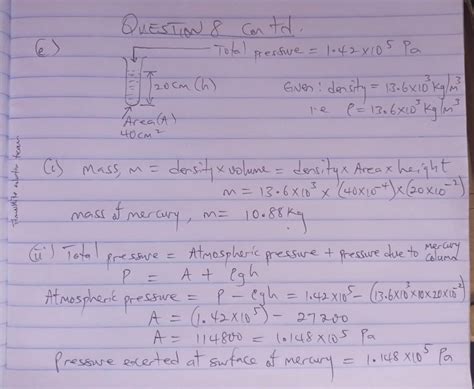 QUESTION 8 Contd.
e)
Total pressure = 1.42×10⁵ Pa
20cm (h)
Given: density = 13.6×10³ kg/m³
i.e ρ = 13.6×10³ kg/m³
Area(A)
40cm²
(i) mass, m = density × volume = density × Area × height
m = 13.6×10³ × (40×10⁻⁴) × (20×10⁻²)
mass of mercury, m = 10.88 kg
(ii) Total pressure = Atmospheric pressure + pressure due to mercury column
P = A + ρgh
Atmospheric pressure = P − ρgh = 1.42×10⁵ − (13.6×10³×10×20×10⁻²)
A = (1.42×10⁵) − 27200
A = 114800 = 1.148×10⁵ Pa
Pressure exerted at surface of mercury = 1.148×10⁵ Pa